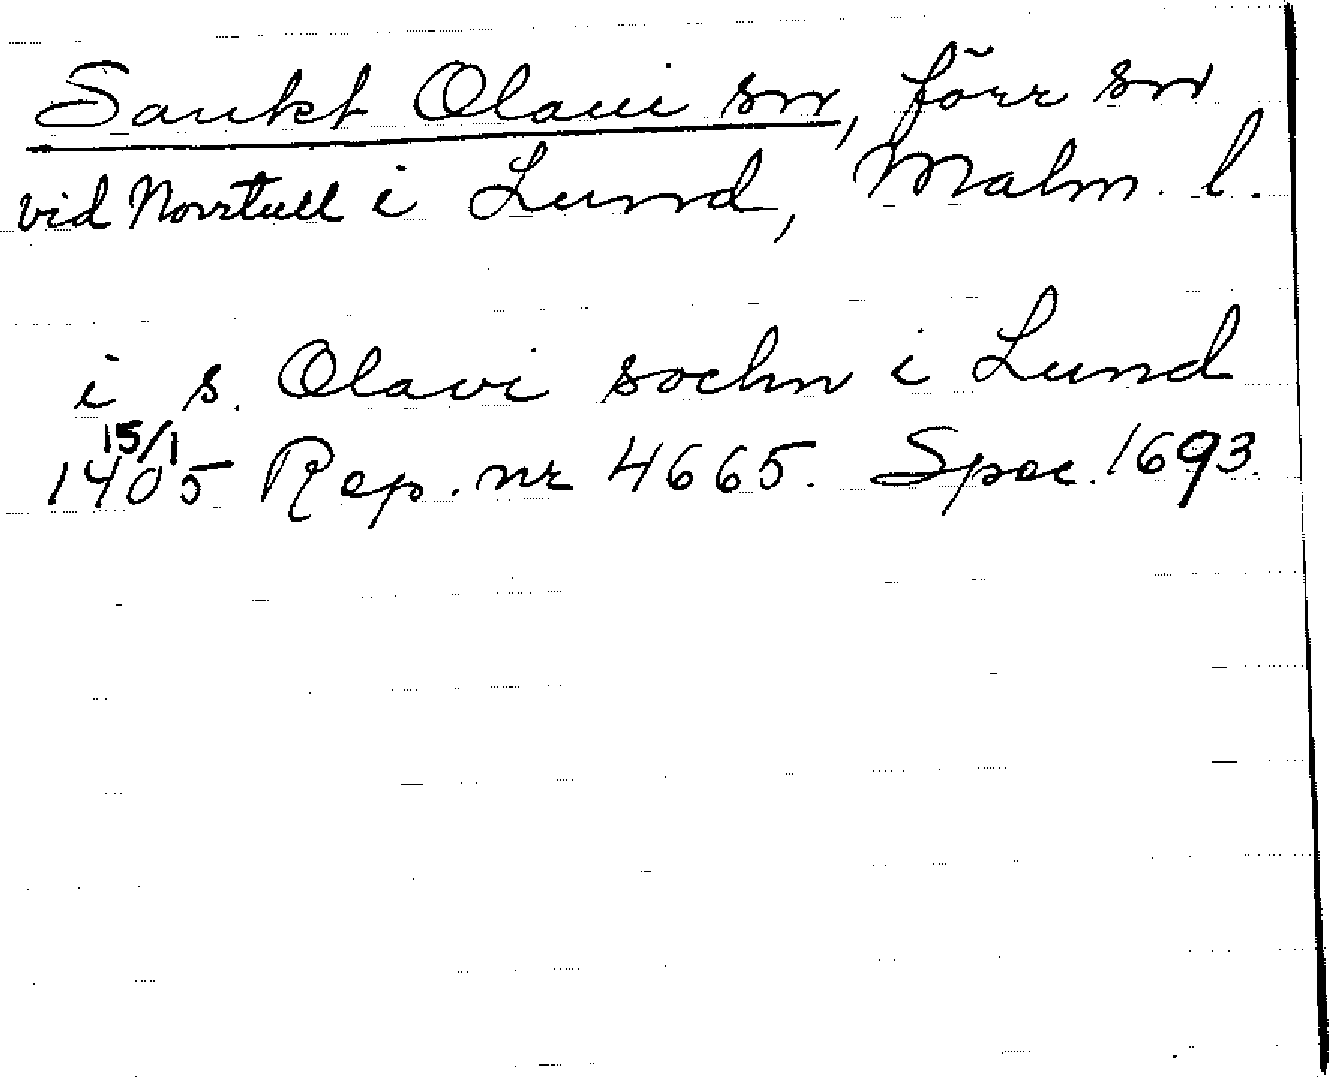 Sankt Olavi sn, förr sn
vid Norrtull i Lund, Malm. l.
i s. Olavi sochn i Lund
15/1
1405 Rep. nr 4665. Spec. 1693.